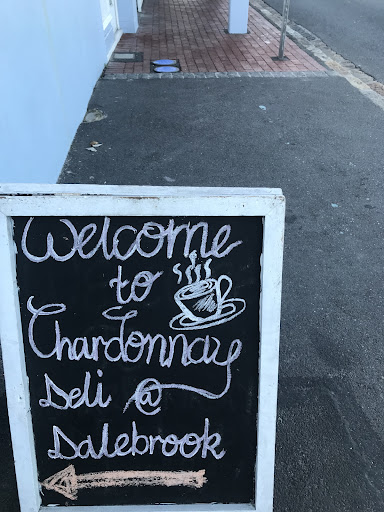 Welcome
to
Chardonnay
Deli @
Dalebrook